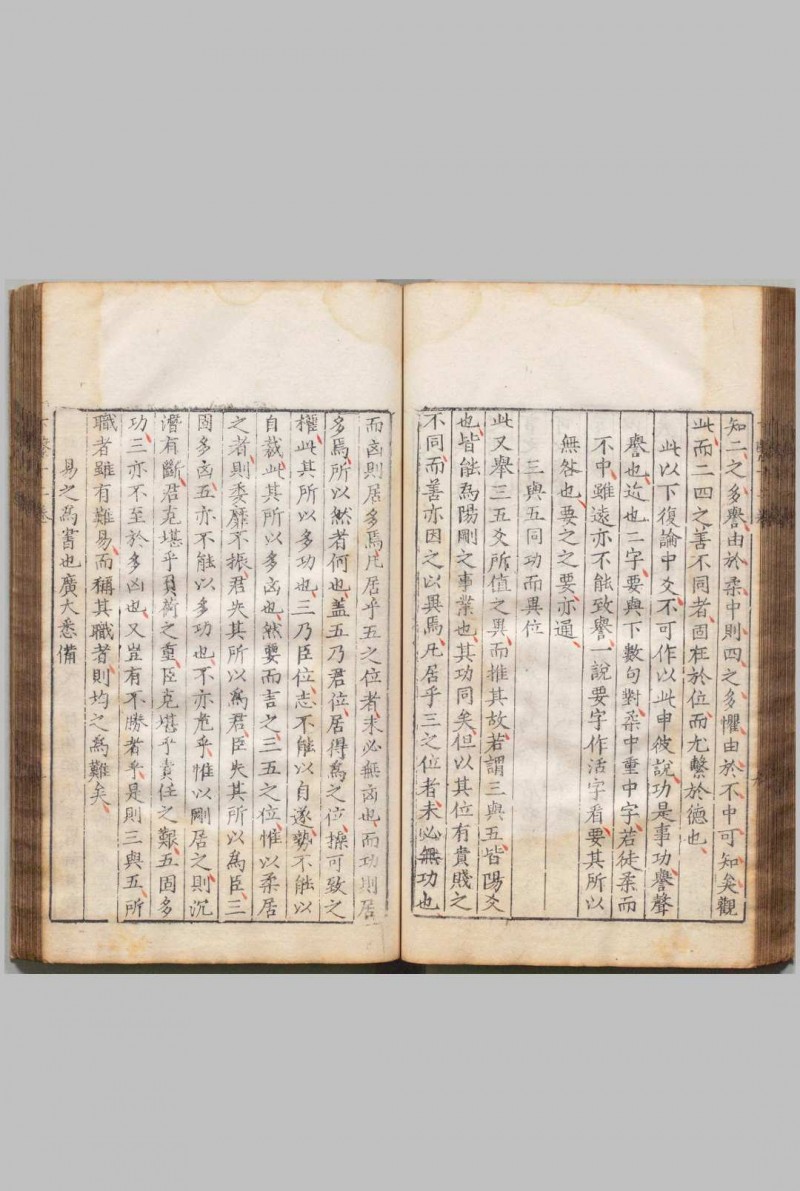 知二之多譽由於柔中則四之多懼由於不中可知矣觀
此而二四之善不同者固在於位而尤繫於德也
此以下復論中爻不可作以此申彼說功是事功譽聲
譽也近也二字要與下數句對柔中重中字若徒柔而
不中雖遠亦不能致譽一說要字作活字看要其所以
無咎也要之之要亦通
三與五同功而異位
此又舉三五爻所值之異而推其故若謂三與五皆陽爻
也皆能為陽剛之事業也其功同矣但以其位有貴賤之
不同而善亦因之以異焉凡居乎三之位者未必無功也
而凶則居多焉凡居乎五之位者未必無凶也而功則居
多焉所以然者何也蓋五乃君位居得為之位操可致之
權此其所以多功也三乃臣位志不能以自遂勢不能以
自裁此其所以多凶也然要而言之三五之位惟以柔居
之者則委靡不振君失其所以為君臣失其所以為臣三
固多凶五亦不能以多功也不亦危乎惟以剛居之則沉
潛有斷君克堪乎負荷之重臣克堪乎責任之艱五固多
功三亦不至於多凶也又豈有不勝者乎是則三與五所
職者雖有難易而稱其職者則均之為難矣
易之為書也廣大悉備